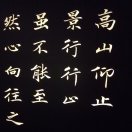 高山仰止
景行行止
雖不能至
然心向往之